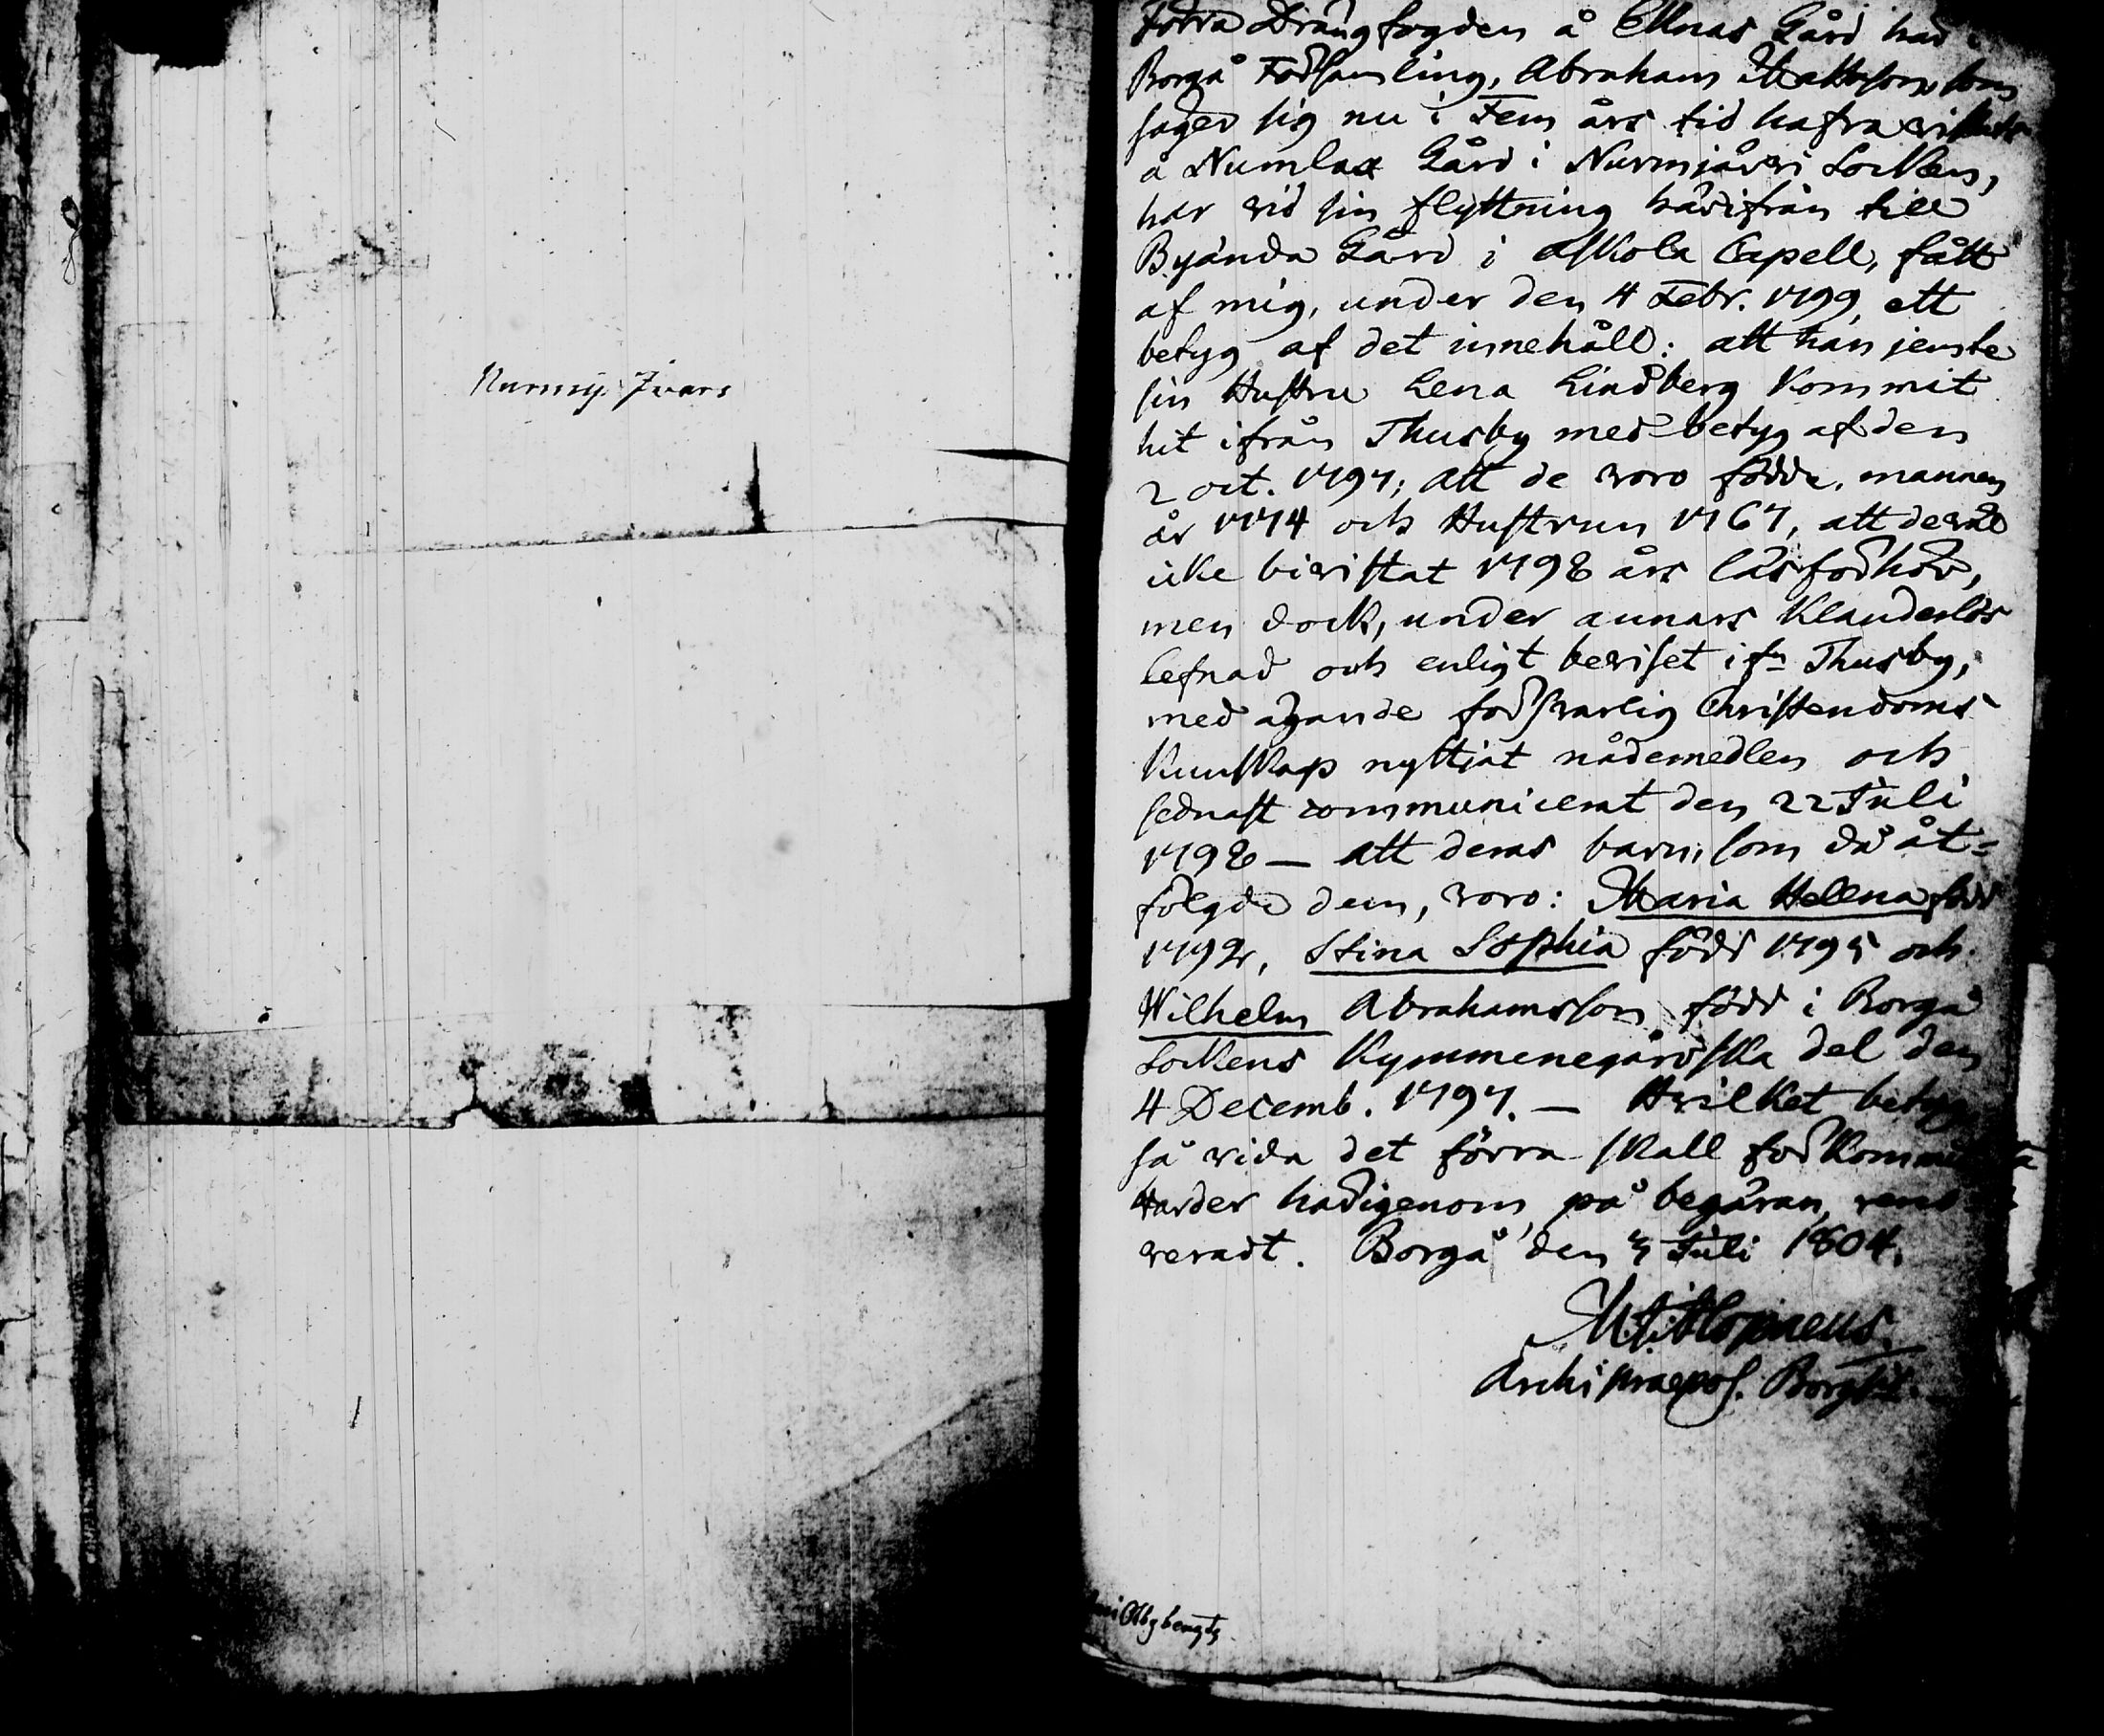 Nurmij Ivars
Förra Drängfogden å Eknas Gård här i
Borgå Församling, Abraham Mattsson, som
säger sig nu i Fem års tid hafva vistats
å Numlax Gård i Nurmijärvi Sockn,
har vid sin flyttning härifrån till
Byända Gård i Askola Capell, fått
af mig, under den 4 Febr. 1799, ett
betyg af det innehåll: att han jemte
sin Hustru Lena Lindberg kommit
hit ifrån Thusby med betyg af den
2 Oct. 1797; att de voro födde, mannen
år 1774 och Hustrun 1767, att de väl
icke bivistat 1798 års läsförhör,
men dock, under annars klanderlös
lefnad och enligt beviset ifn Thusby,
med ägande försvarlig Christendoms
kunskap nyttjat nådemedlen och
sednast communicerat den 22 Juli
1798 — att deras barn, som då åt=
följde dem, voro: Maria Helena född
1792, Stina Sophia född 1795 och
Wilhelm Abrahamsson född i Borgå
Sockens Kymmenegårdska del den
4 Decemb. 1797. — Hvilket betyg
så vida det förra skall förkommit
varder härigenom, på begäran, reno
veradt. Borgå den Juli 1804.
Archipraepos.